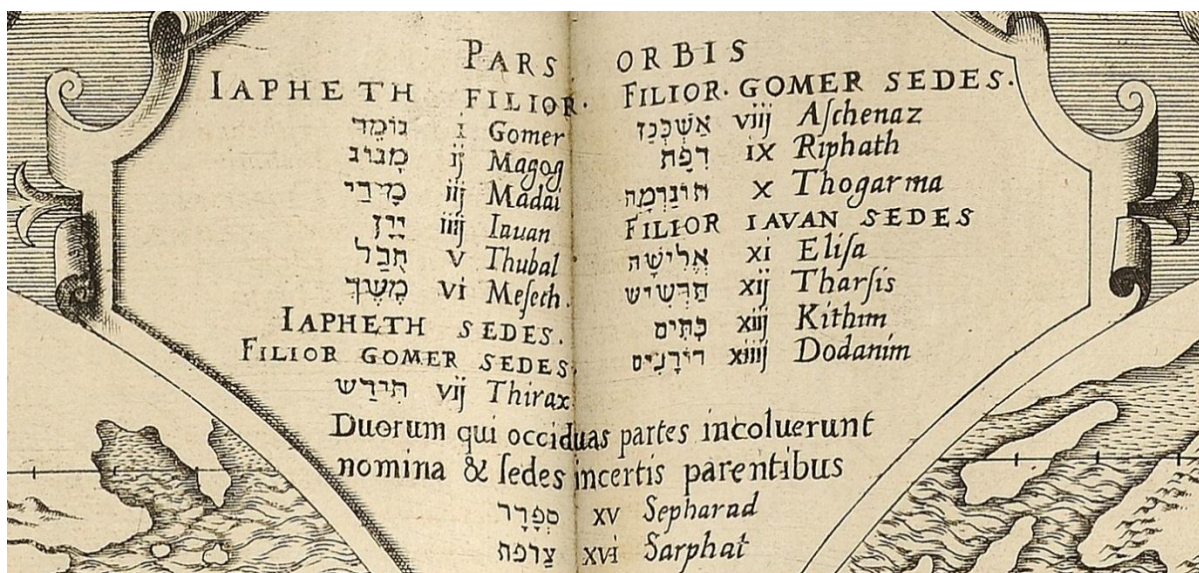 PARS ORBIS
IAPHETH FILIOR.
גוֹמֶר i Gomer
מָגוֹג ij Magog
מָידַי iij Madai
יָוָן iiij Iauan
תֻבַל v Thubal
מֶשֶךְ vi Meſech.
IAPHETH SEDES.
FILIOR GOMER SEDES.
תִירַש vij Thirax
FILIOR. GOMER SEDES.
אַשְׁכְּנַז viij Aſchenaz
רִפָת ix Riphath
תוֹגַרְמָה x Thogarma
FILIOR IAVAN SEDES
אֱלִישָׁה xi Eliſa
תַרְשִׁיש xij Tharſis
כִתִים xiij Kithim
דוֹדָנִים xiiij Dodanim
Duorum qui occiduas partes incoluerunt
nomina & ſedes incertis parentibus
סְפָרָד xv Sepharad
צַרפת xvi Sarphat